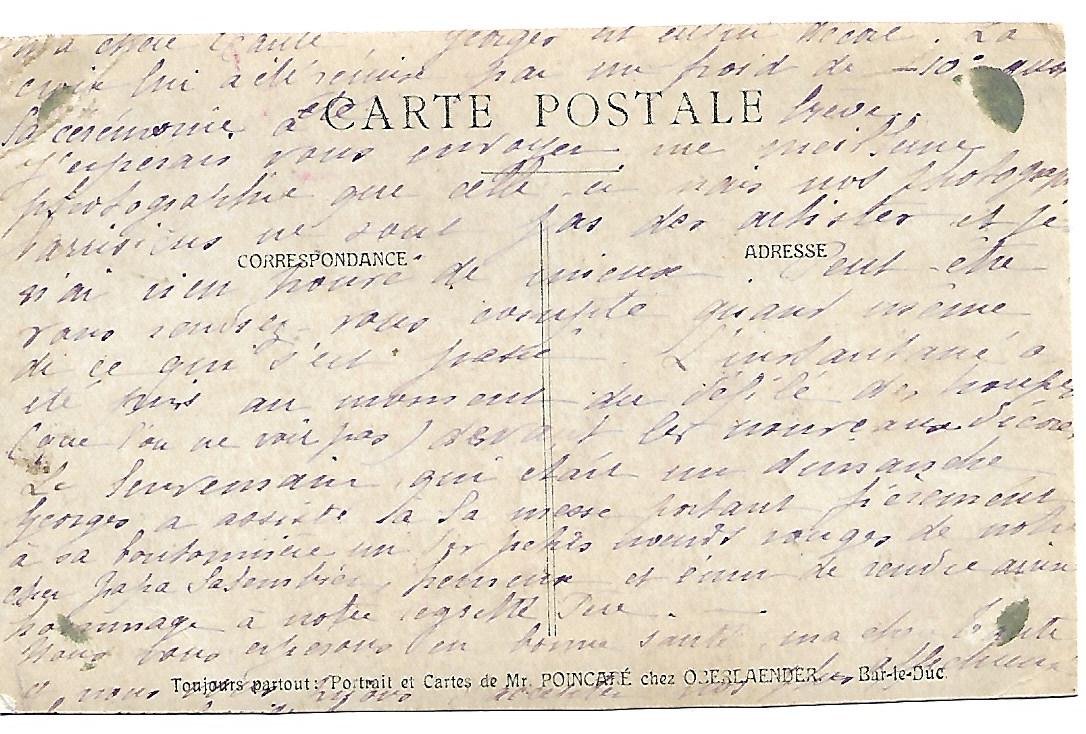 Ma chère Tante, Georges est enfin décoré. La
croix lui a été remise par un froid de -10° aussi
la cérémonie a été brève.
CARTE POSTALE
J'espérais vous envoyer une meilleure
photographie que celle-ci mais nos photographes
barrisiens ne sont pas des artistes et je
CORRESPONDANCE
ADRESSE
n'ai rien trouvé de mieux. Peut-être
vous rendrez-vous compte quand même
de ce qui s'est passé. L'instantané a
été pris au moment du défilé des troupes
(que l'on ne voit pas) devant les nouveaux décorés
Le lendemain qui était un dimanche
Georges a assisté à la messe portant fièrement
à sa boutonnière un des petits nœuds rouges de notre
cher Papa heureux et ému de rendre ainsi
hommage à notre regretté Père.
Nous vous espérons en bonne santé, ma chère Tante
et nous vous affectueux
Toujours partout: Portrait et Cartes de Mr. POINCARÉ chez OBERLAENDER. — Bar-le-Duc.